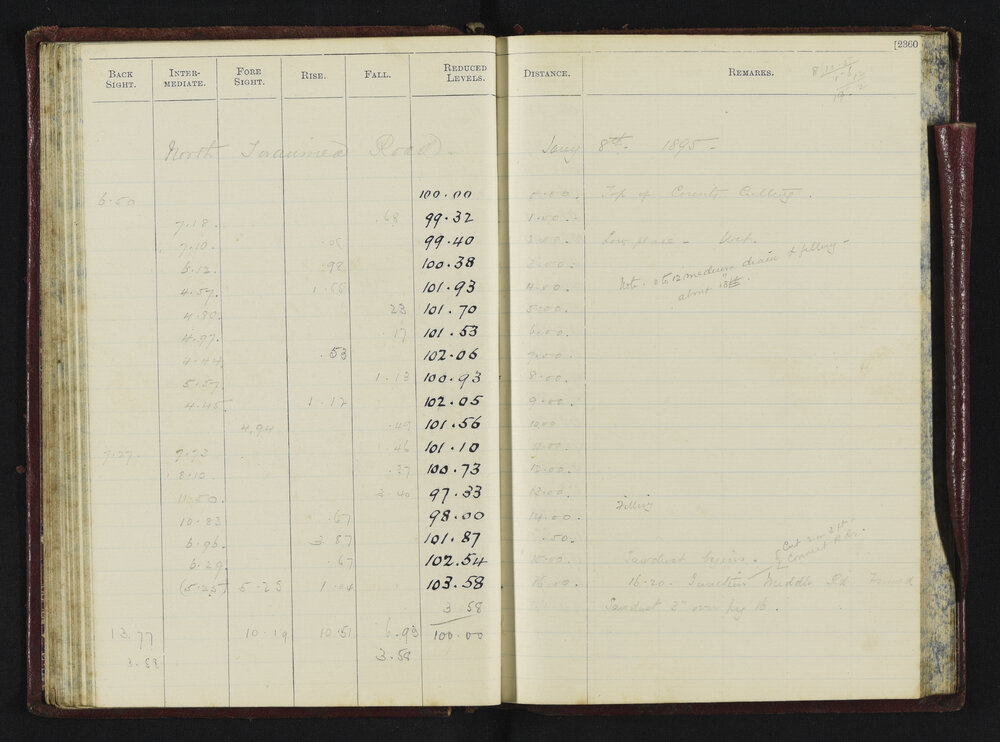 [2360
BACK SIGHT. INTER-MEDIATE. FORE SIGHT. RISE. FALL. REDUCED LEVELS. DISTANCE. REMARKS.
North Road Jany 8th 1895
6.50 100.00 0.00 Top of Culling
7.18 .68 99.32 1.00
7.10 .08 99.40 2.00 Low place - Wet
6.12 .98 100.38 3.00
Note. medium drain & filling
4.57 101.93 4.00 about 18
4.80 23 101.70 5.00
4.97 .17 101.53 6.00
4.44 .53 102.06 7.00
5.57 1.13 100.93 8.00
4.45 1.12 102.05 9.00
4.94 .49 101.56 10.00
7.27 7.73 .46 101.10 11.00
8.10 .37 100.73 12.00
11.50 3.40 97.33 13.00
10.83 .67 98.00 14.00 Filling
6.96 3.87 101.87 .50
6.29 .67 102.54 15.00 Sawdust begins
(5.25) 5.25 1.04 103.58 16.00 16.20 Junction Middle Rd
3 58 Sawdust 3" over
13.77 10.19 10.51 6.93 100.00
3.58 3.58